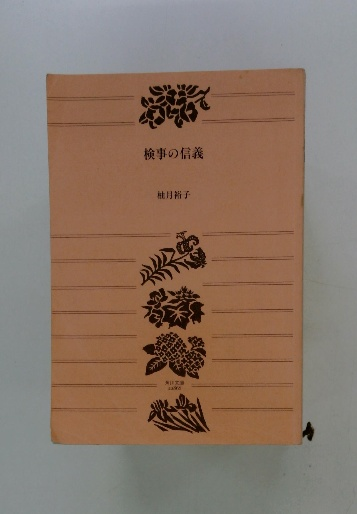 検事の信義
柚月裕子
角川文庫